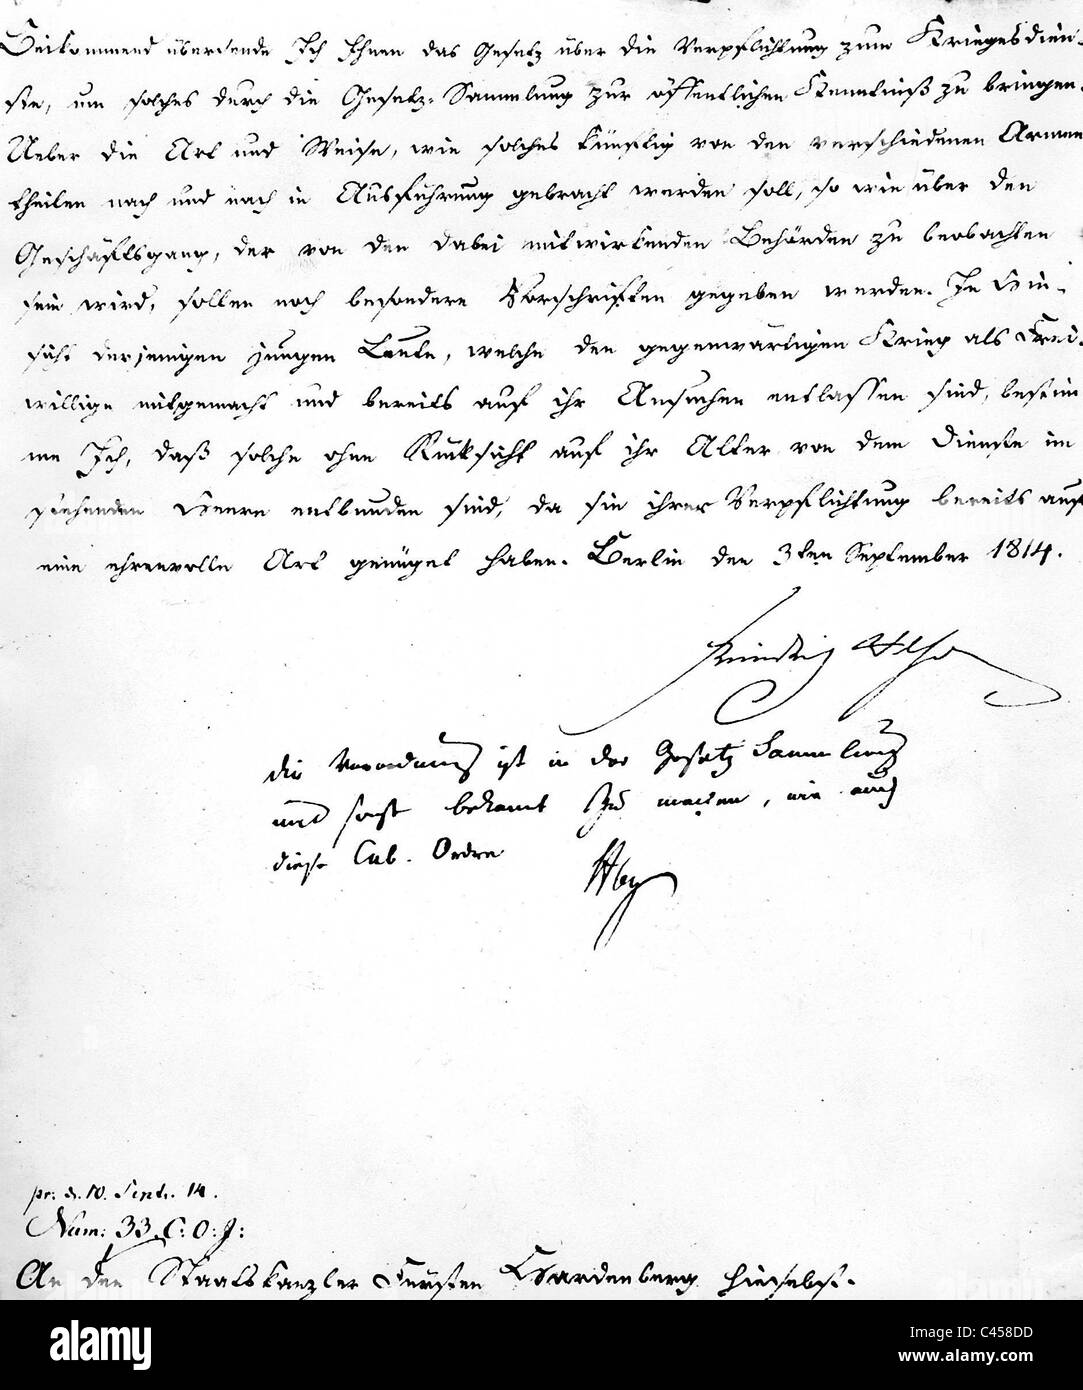 Beikommend übersende Ich Ihnen das Gesetz über die Verpflichtung zum Kriegesdien-
ste, um solches durch die Gesetz-Sammlung zur öffentlichen Kenntniß zu bringen.
Ueber die Art und Weise, wie solches künftig von den verschiedenen Armee
theilen nach und nach in Ausführung gebracht werden soll, so wie über den
Geschäftsgang, der von den dabei mitwirkenden Behörden zu beobachten
sein wird, sollen noch besondere Vorschriften gegeben werden. In Hin-
sicht derjenigen jungen Leute, welche den gegenwärtigen Krieg als Frei-
willige mitgemacht und bereits auf ihr Ansuchen entlassen sind, bestim
me Ich, daß solche ohne Rücksicht auf ihr Alter von dem Dienste im
stehenden Heere entbunden sind, da sie ihrer Verpflichtung bereits auf
eine ehrenvolle Art genüget haben. Berlin den 3ten September 1814.
Friedrich Wilhelm
die Verordnung ist in der Gesetz Sammlung
und sonst bekannt zu machen, wie auch
diese Cab. Ordre
Hbg
pr: d. 10. Sept. 14.
Num: 33. C: O: J:
An den Staatskanzler Fürsten Hardenberg hieselbst.
alamy
Image ID: C458DD
www.alamy.com